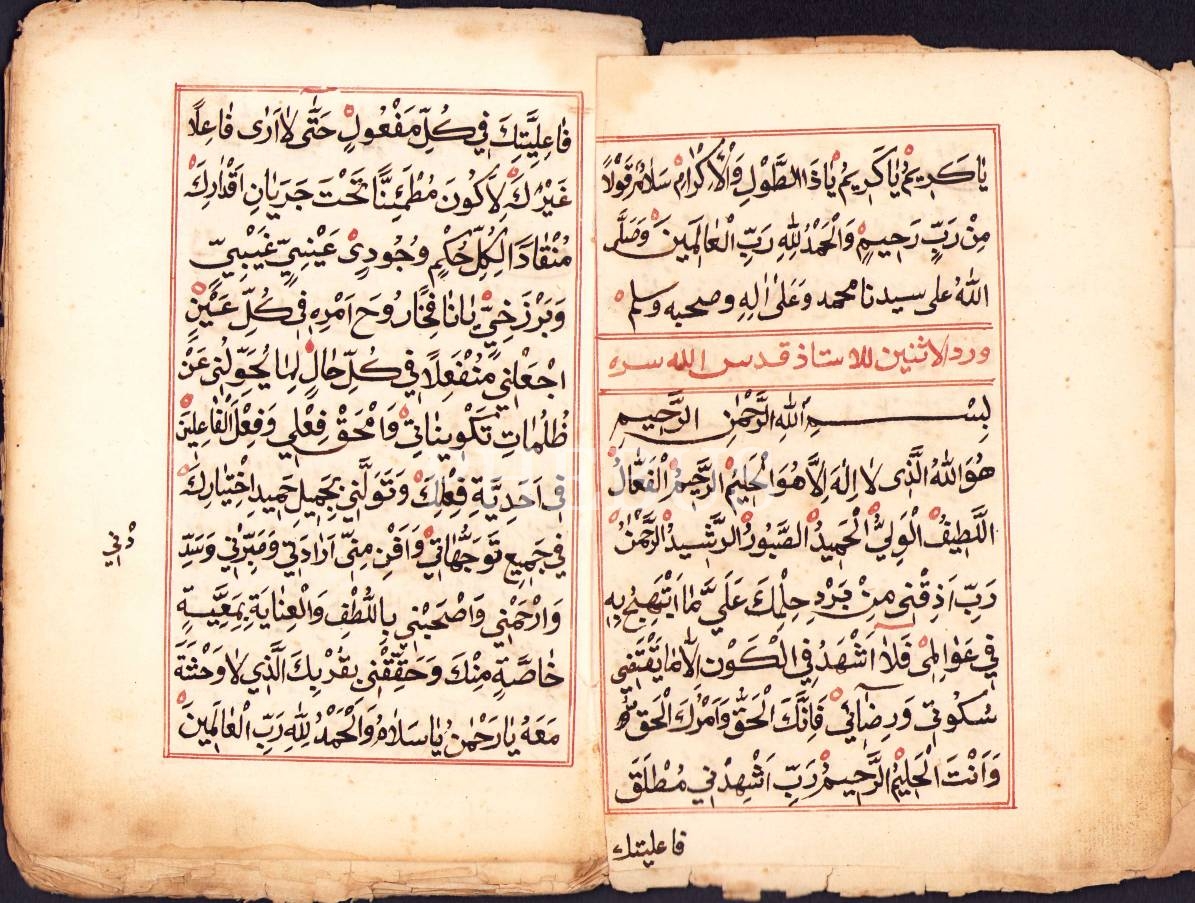 يَا كَرِيمُ يَا كَرِيمُ يَا ذَا الطَّوْلِ وَالْاِكْرَامِ سَلَامٌ قَوْلًا
مِنْ رَبٍّ رَحِيمٍ وَالْحَمْدُ لِلّٰهِ رَبِّ الْعَالَمِينَ وَصَلَّى
اللّٰهُ عَلَى سيدنا محمد وَعَلَى اٰلِهِ وصحبه وسلم
ورد الاثنين للاستاذ قدس الله سره
بِسْمِ اللّٰهِ الرَّحْمٰنِ الرَّحِيمِ
هُوَ اللّٰهُ الَّذِى لَا اِلٰهَ اِلَّا هُوَ الْحَلِيمُ الرَّحِيمُ الْفَعَّالُ
اللَّطِيفُ الْوَلِيُّ الْحَمِيدُ الصَّبُورُ الرَّشِيدُ الرَّحْمٰنُ
رَبِّ اَذِقْنِى مِنْ بَرْدِ حِلْمِكَ عَلَيَّ مَا اَبْتَهِجُ بِهِ
فِي عَوَالِمِى فَلَا اَشْهَدُ فِي الْكَوْنِ اِلَّا مَا يَقْتَضِى
سُكُوتِى وَرِضَائِي فَاِنَّكَ الْحَقُّ وَاَمْرُكَ الْحَقُّ
وَاَنْتَ الْحَلِيمُ الرَّحِيمُ رَبِّ اَشْهِدْنِي مُطْلَقَ
فاعليتك
فَاعِلِيَّتِكَ فِي كُلِّ مَفْعُولٍ حَتَّى لَا اَرَى فَاعِلًا
غَيْرَكَ لِاَكُونَ مُطْمَئِنًّا تَحْتَ جَرَيَانِ اَقْدَارِكَ
مُنْقَادًا لِكُلِّ حُكْمٍ وُجُودِىٍّ عَيْنِيٍّ غَيْبِيٍّ
وَبَرْزَخِيٍّ يَا نَافِخًا رُوحَ اَمْرِهِ فِى كُلِّ عَيْنٍ
اجْعَلْنِي مُنْفَعِلًا فِي كُلِّ حَالٍ لِمَا يُحَوِّلُنِي عَنْ
ظُلُمَاتِ تَكْوِينَاتِي وَامْحَقْ فِعْلِي وَفِعْلَ الْفَاعِلِينَ
فِى اَحَدِيَّةِ فِعْلِكَ وَتَوَلَّنِي بِجَمِيلِ حَمِيدِ اخْتِيَارِكَ
فِي جَمِيعِ تَوَجُّهَاتِي وَافْنِ مِنِّى اَرَادَتِي وَصَبِّرْنِي وَسَدِّ
دْني
وَارْحَمْنِي وَاصْحَبْنِي بِاللُّطْفِ وَالْعِنَايَةِ بِمَعِيَّةٍ
خَاصَّةٍ مِنْكَ وَحَقِّقْنِى بِقُرْبِكَ الَّذِي لَا وَحْشَةَ
مَعَهُ يَا رَحْمٰنُ يَا سَلَامُ وَالْحَمْدُ لِلّٰهِ رَبِّ الْعَالَمِينَ